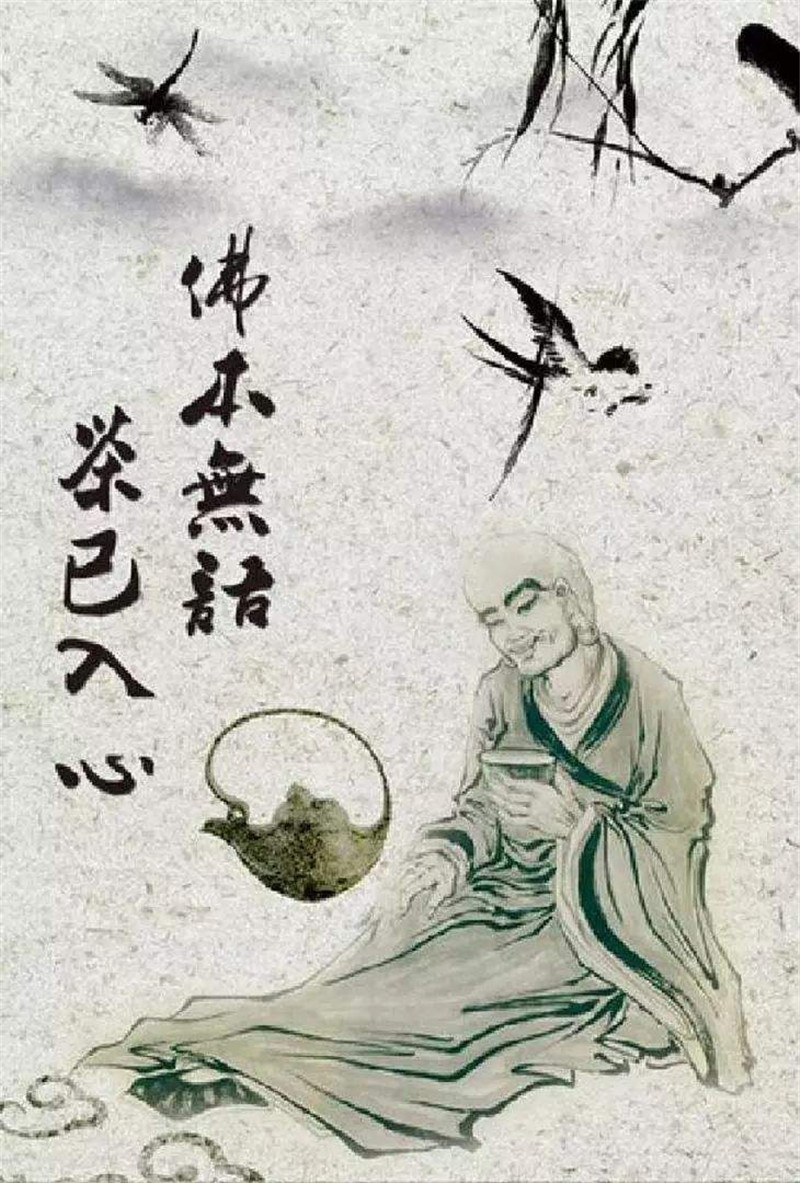 佛本無話
茶已入心